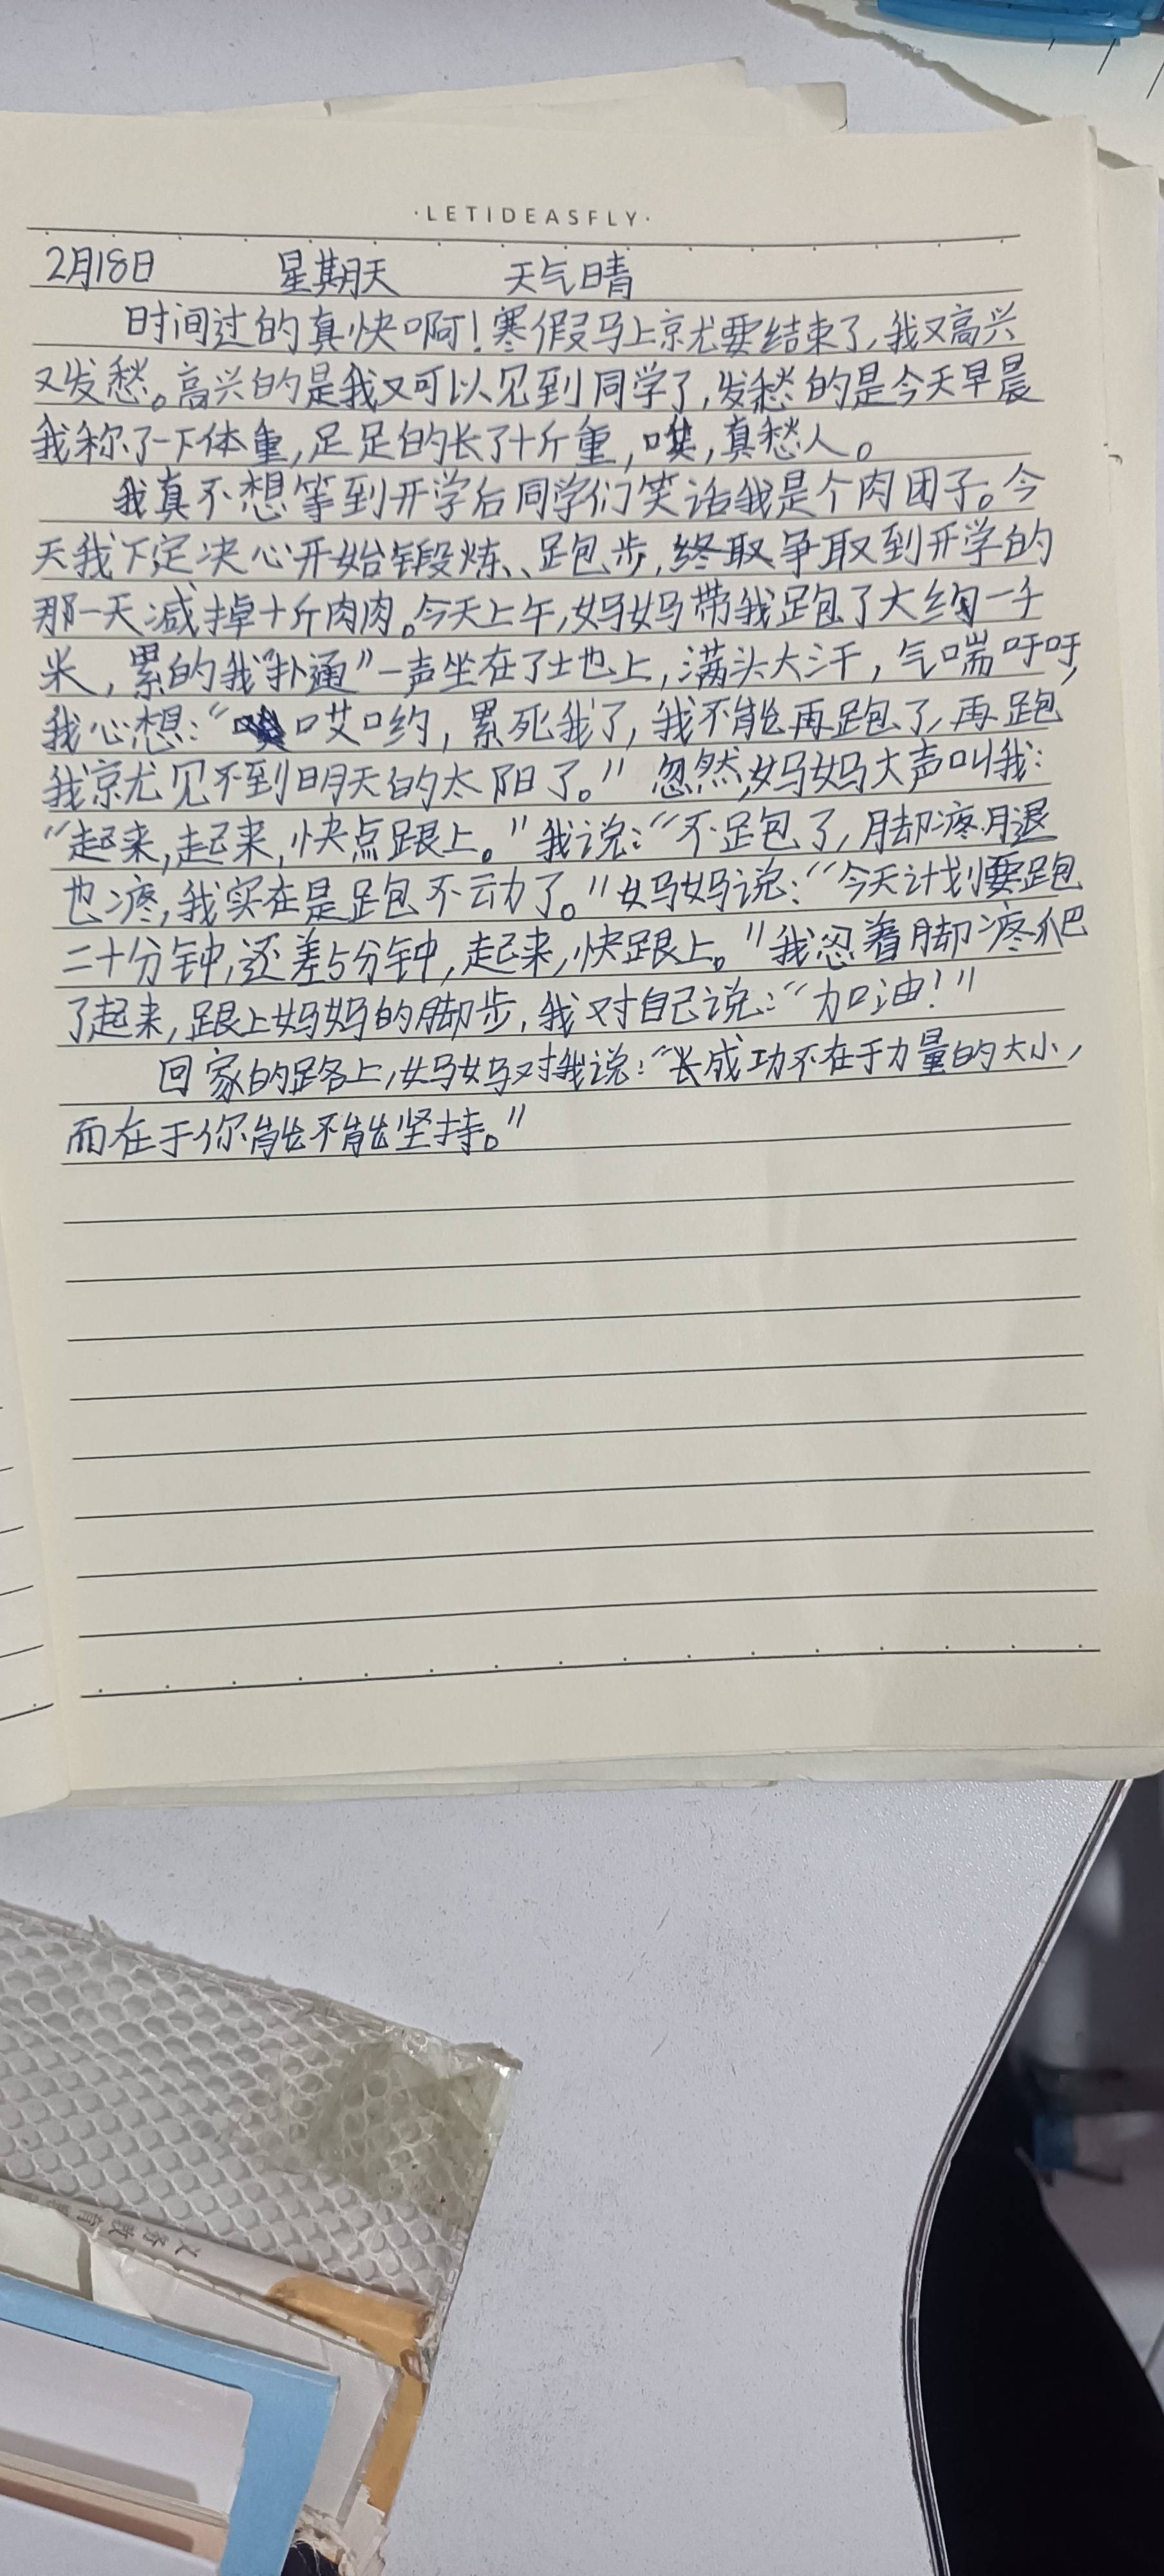 ·LETIDEASFLY·
2月18日 星期天 天气晴
时间过的真快啊！寒假马上就要结束了，我又高兴
又发愁。高兴的是我又可以见到同学了，发愁的是今天早晨
我称了一下体重，足足的长了十斤重，唉，真愁人。
我真不想等到开学后同学们笑话我是个肉团子。今
天我下定决心开始锻炼、跑步，争取到开学的
那一天减掉十斤肉肉。今天上午，妈妈带我跑了大约一千
米，累的我“扑通”一声坐在了地上，满头大汗，气喘吁吁，
我心想：“哎哟，累死我了，我不能再跑了，再跑
我就见不到明天的太阳了。”忽然，妈妈大声叫我：
“起来，起来，快点跟上。”我说：“不跑了，脚疼腿
也疼，我实在是跑不动了。”妈妈说：“今天计划要跑
二十分钟，还差5分钟，起来，快跟上。”我忍着脚疼爬
了起来，跟上妈妈的脚步，我对自己说：“加油！”
回家的路上，妈妈对我说：“成功不在于力量的大小，
而在于你能不能坚持。”
义务教育